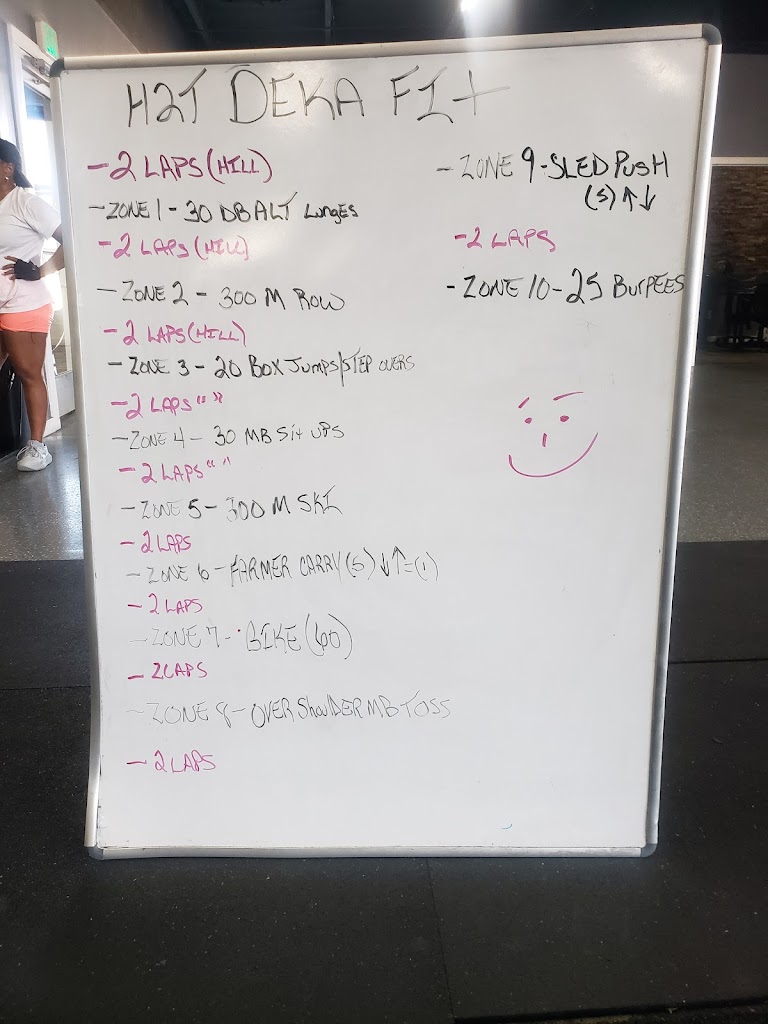 H2T DEKA FIt
- 2 LAPS (HILL)
- ZONE 1 - 30 DB ALT Lunges
- 2 LAPS (HILL)
- ZONE 2 - 300 M ROW
- 2 LAPS (HILL)
- ZONE 3 - 20 BOX JUMPS/STEP OVERS
- 2 LAPS "  "
- ZONE 4 - 30 MB Sit UPS
- 2 LAPS "  "
- ZONE 5 - 300 M SKI
- 2 LAPS
- ZONE 6 - FARMER CARRY (5) ↓↑=(1)
- 2 LAPS
- ZONE 7 - BIKE (60)
- 2 LAPS
- ZONE 8 - OVER ShouLDER MB TOSS
- 2 LAPS
- ZONE 9 - SLED PUSH
(5) ↑↓
- 2 LAPS
- ZONE 10 - 25 BURPEES